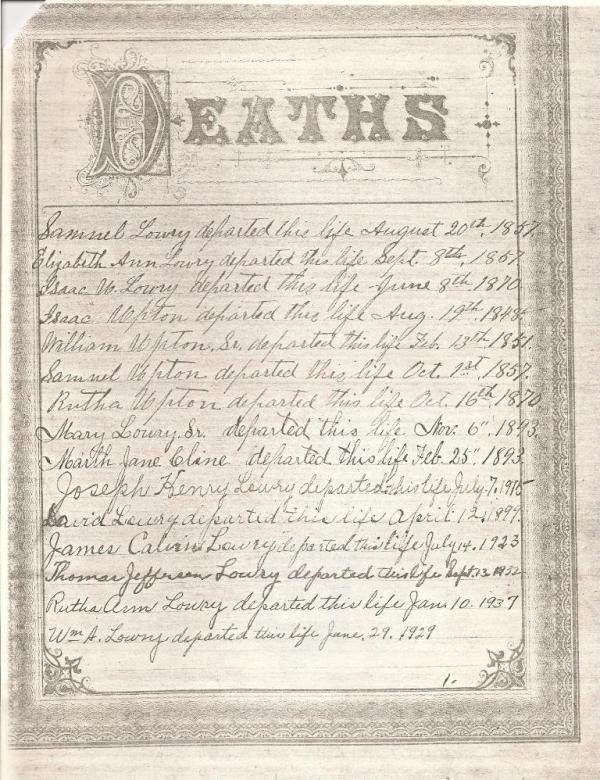 DEATHS
Samuel Lowry departed this life August 20th, 1857.
Elizabeth Ann Lowry departed this life Sept. 8th, 1857
Isaac W. Lowry departed this life June 8th, 1870
Isaac Upton departed this life Aug. 19th
William Upton, Sr. departed this life Feb. 1851.
Samuel Upton departed this life Oct. 1st, 1857.
Rutha Upton departed this life Oct. 16th, 1870
Mary Lowry, Sr. departed this life Nov. 6", 1893.
Marth Jane Cline departed this life Feb. 25", 1893
Joseph Henry Lowry departed this life July, 7, 1915
David Lowry departed this life April 12, 1899.
James Calvin Lowry departed this life July 14. 1923
Thomas Jefferson Lowry departed this life Sept. 13
Rutha Ann Lowry departed this life Jan. 10. 1937
Wm A. Lowry departed this life June, 29. 1929
1.